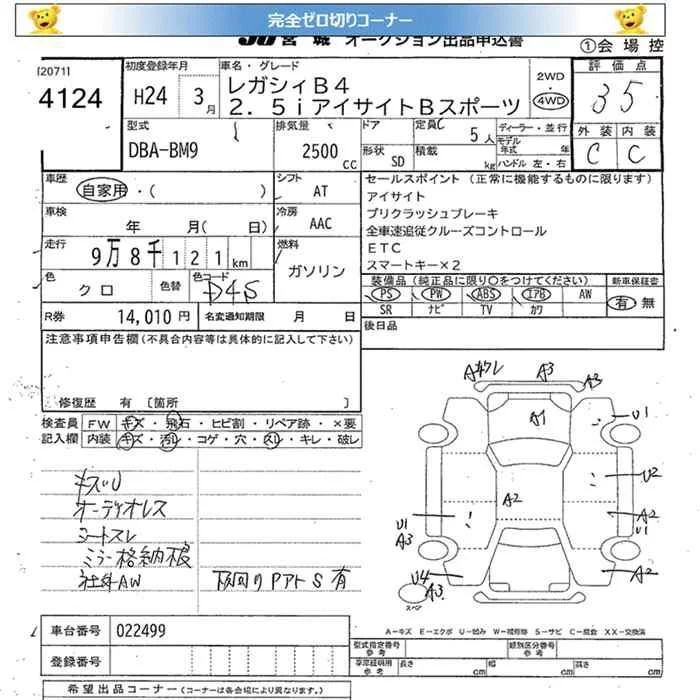 完全ゼロ切りコーナー
JU 宮城 オークション出品申込書
①会場控
[2071]
4124
初度登録年月
H24 3月
車名・グレード
レガシィB4
2.5iアイサイトBスポーツ
2WD
・
4WD
評価点
3.5
外装 内装
C C
型式
DBA-BM9
排気量
2500cc
ドア
形状 SD
定員 5人
積載 kg
ディーラー・並行
モデル年式 年
ハンドル 左・右
車歴
自家用・( )
シフト
AT
車検
年 月( 日)
冷房
AAC
走行
9万8千121km
燃料
ガソリン
色
クロ
色替
色コード
D4S
R券 14,010円
名変通知期限 月 日
セールスポイント (正常に機能するものに限ります)
アイサイト
プリクラッシュブレーキ
全車速追従クルーズコントロール
ETC
スマートキー×2
装備品(純正品に限り○をつけてください)
PS PW ABS エアB AW
SR ナビ TV カワ
新車保証書
有・無
後日品
注意事項申告欄(不具合内容等は具体的に記入して下さい)
修復歴 有 〔箇所 〕
検査員記入欄
FW キズ・飛石・ヒビ割・リペア跡・×要
内装 キズ・汚れ・コゲ・穴・スレ・キレ・破レ
キズU
オーディオレス
シートスレ
ミラー格納不良
社外AW
下回りPアトS有
A キワレ A3 A3
A1
U1
U2
A2
A2
U1
U1
A3
U4
A3
A2
スペア
A-キズ E-エクボ U-凹み W-補修跡 S-サビ C-腐食 XX-交換済
車台番号 022499
登録番号
型式指定番号 参考
類別区分番号 参考
車庫証明用 参考 長さ cm 幅 cm 高さ cm
希望出品コーナー (コーナーは各会場により異なります。)